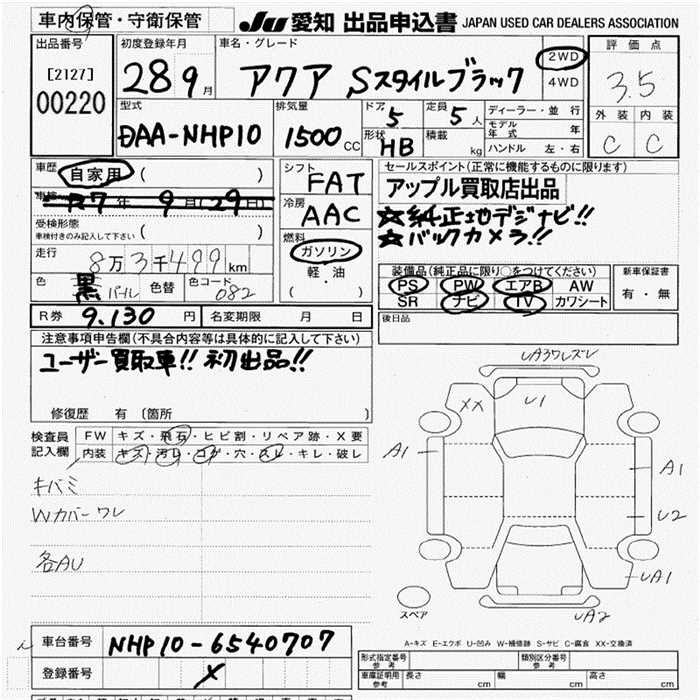 車内保管・守衛保管
JU 愛知 出品申込書 JAPAN USED CAR DEALERS ASSOCIATION
出品番号
[2127]
00220
初度登録年月
28 9月
車名・グレード
アクア Sスタイルブラック
2WD
4WD
評価点
3.5
外装 内装
C C
型式
DAA-NHP10
排気量
1500cc
ドア
5
定員
5人
形状
HB
積載
kg
ディーラー・並行
モデル年式 年
ハンドル 左・右
車歴
自家用 ( )
車検 R7年 9月(29日)
受検形態
車検付きのみ記入して下さい ( )
走行
8万3千499km
色
黒パール
色替
色コード
082
シフト
FAT
冷房
AAC
燃料
ガソリン
軽・油
( )
セールスポイント(正常に機能するものに限ります)
アップル買取店出品
☆純正地デジナビ!!
☆バックカメラ!!
装備品(純正品に限り○をつけてください)
PS PW エアB AW
SR ナビ TV カワシート
新車保証書
有・無
後日品
R券 9.130円
名変期限 月 日
注意事項申告欄(不具合内容等は具体的に記入して下さい)
ユーザー買取車!! 初出品!!
修復歴 有 〔箇所 〕
検査員記入欄
FW キズ・飛石・ヒビ割・リペア跡・X要
内装 キズ・汚レ・コゲ・穴・スレ・キレ・破レ
キバミ
Wカバーワレ
各AU
UA3ワレズレ
XX
U1
A1
A1
U2
UA1
UA2
スペア
A-キズ E-エクボ U-凹み W-補修跡 S-サビ C-腐食 XX-交換済
車台番号 NHP10-6540707
登録番号 X
形式指定番号
参考
類別区分番号
参考
車庫証明用
参考
長さ cm
幅 cm
高さ cm